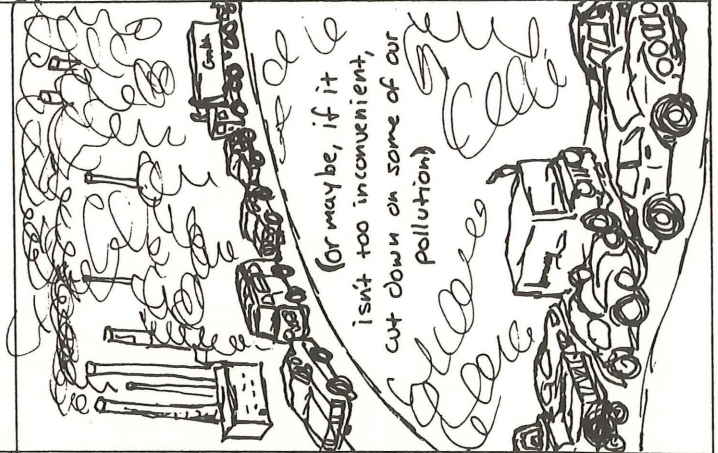 (or maybe, if it
isn't too inconvenient,
cut down on some of our
pollution)